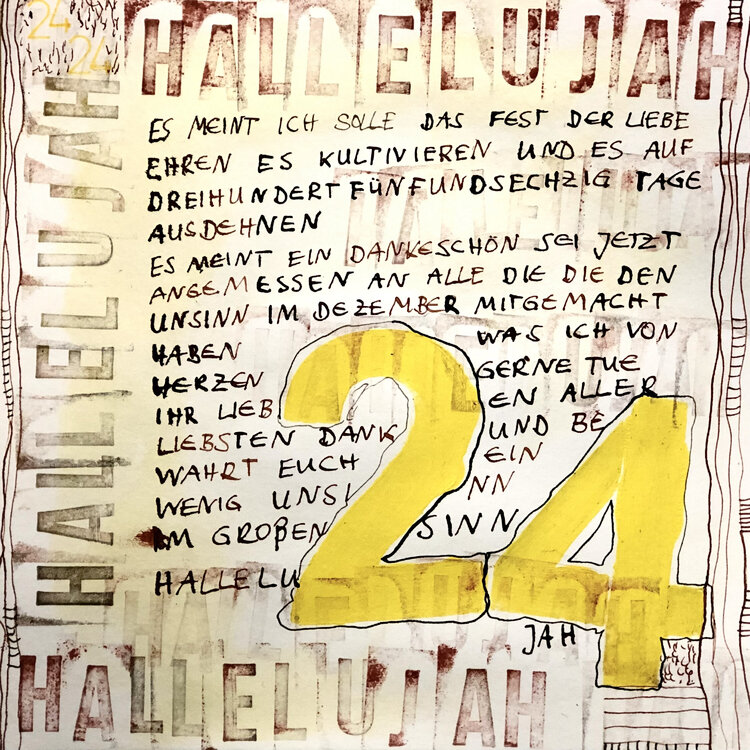 24
24
HALLELUJAH
HALLELUJAH
ES MEINT ICH SOLLE DAS FEST DER LIEBE
EHREN ES KULTIVIEREN UND ES AUF
DREIHUNDERTFÜNFUNDSECHZIG TAGE
AUSDEHNEN
ES MEINT EIN DANKESCHÖN SEI JETZT
ANGEMESSEN AN ALLE DIE DIE DEN
UNSINN IM DEZEMBER MITGEMACHT
HABEN WAS ICH VON
HERZEN GERNE TUE
IHR LIEB EN ALLER
LIEBSTEN DANK UND BE
WAHRT EUCH EIN
WENIG UNSI NN
IM GROßEN SINN
HALLELU JAH
24
HALLELUJAH